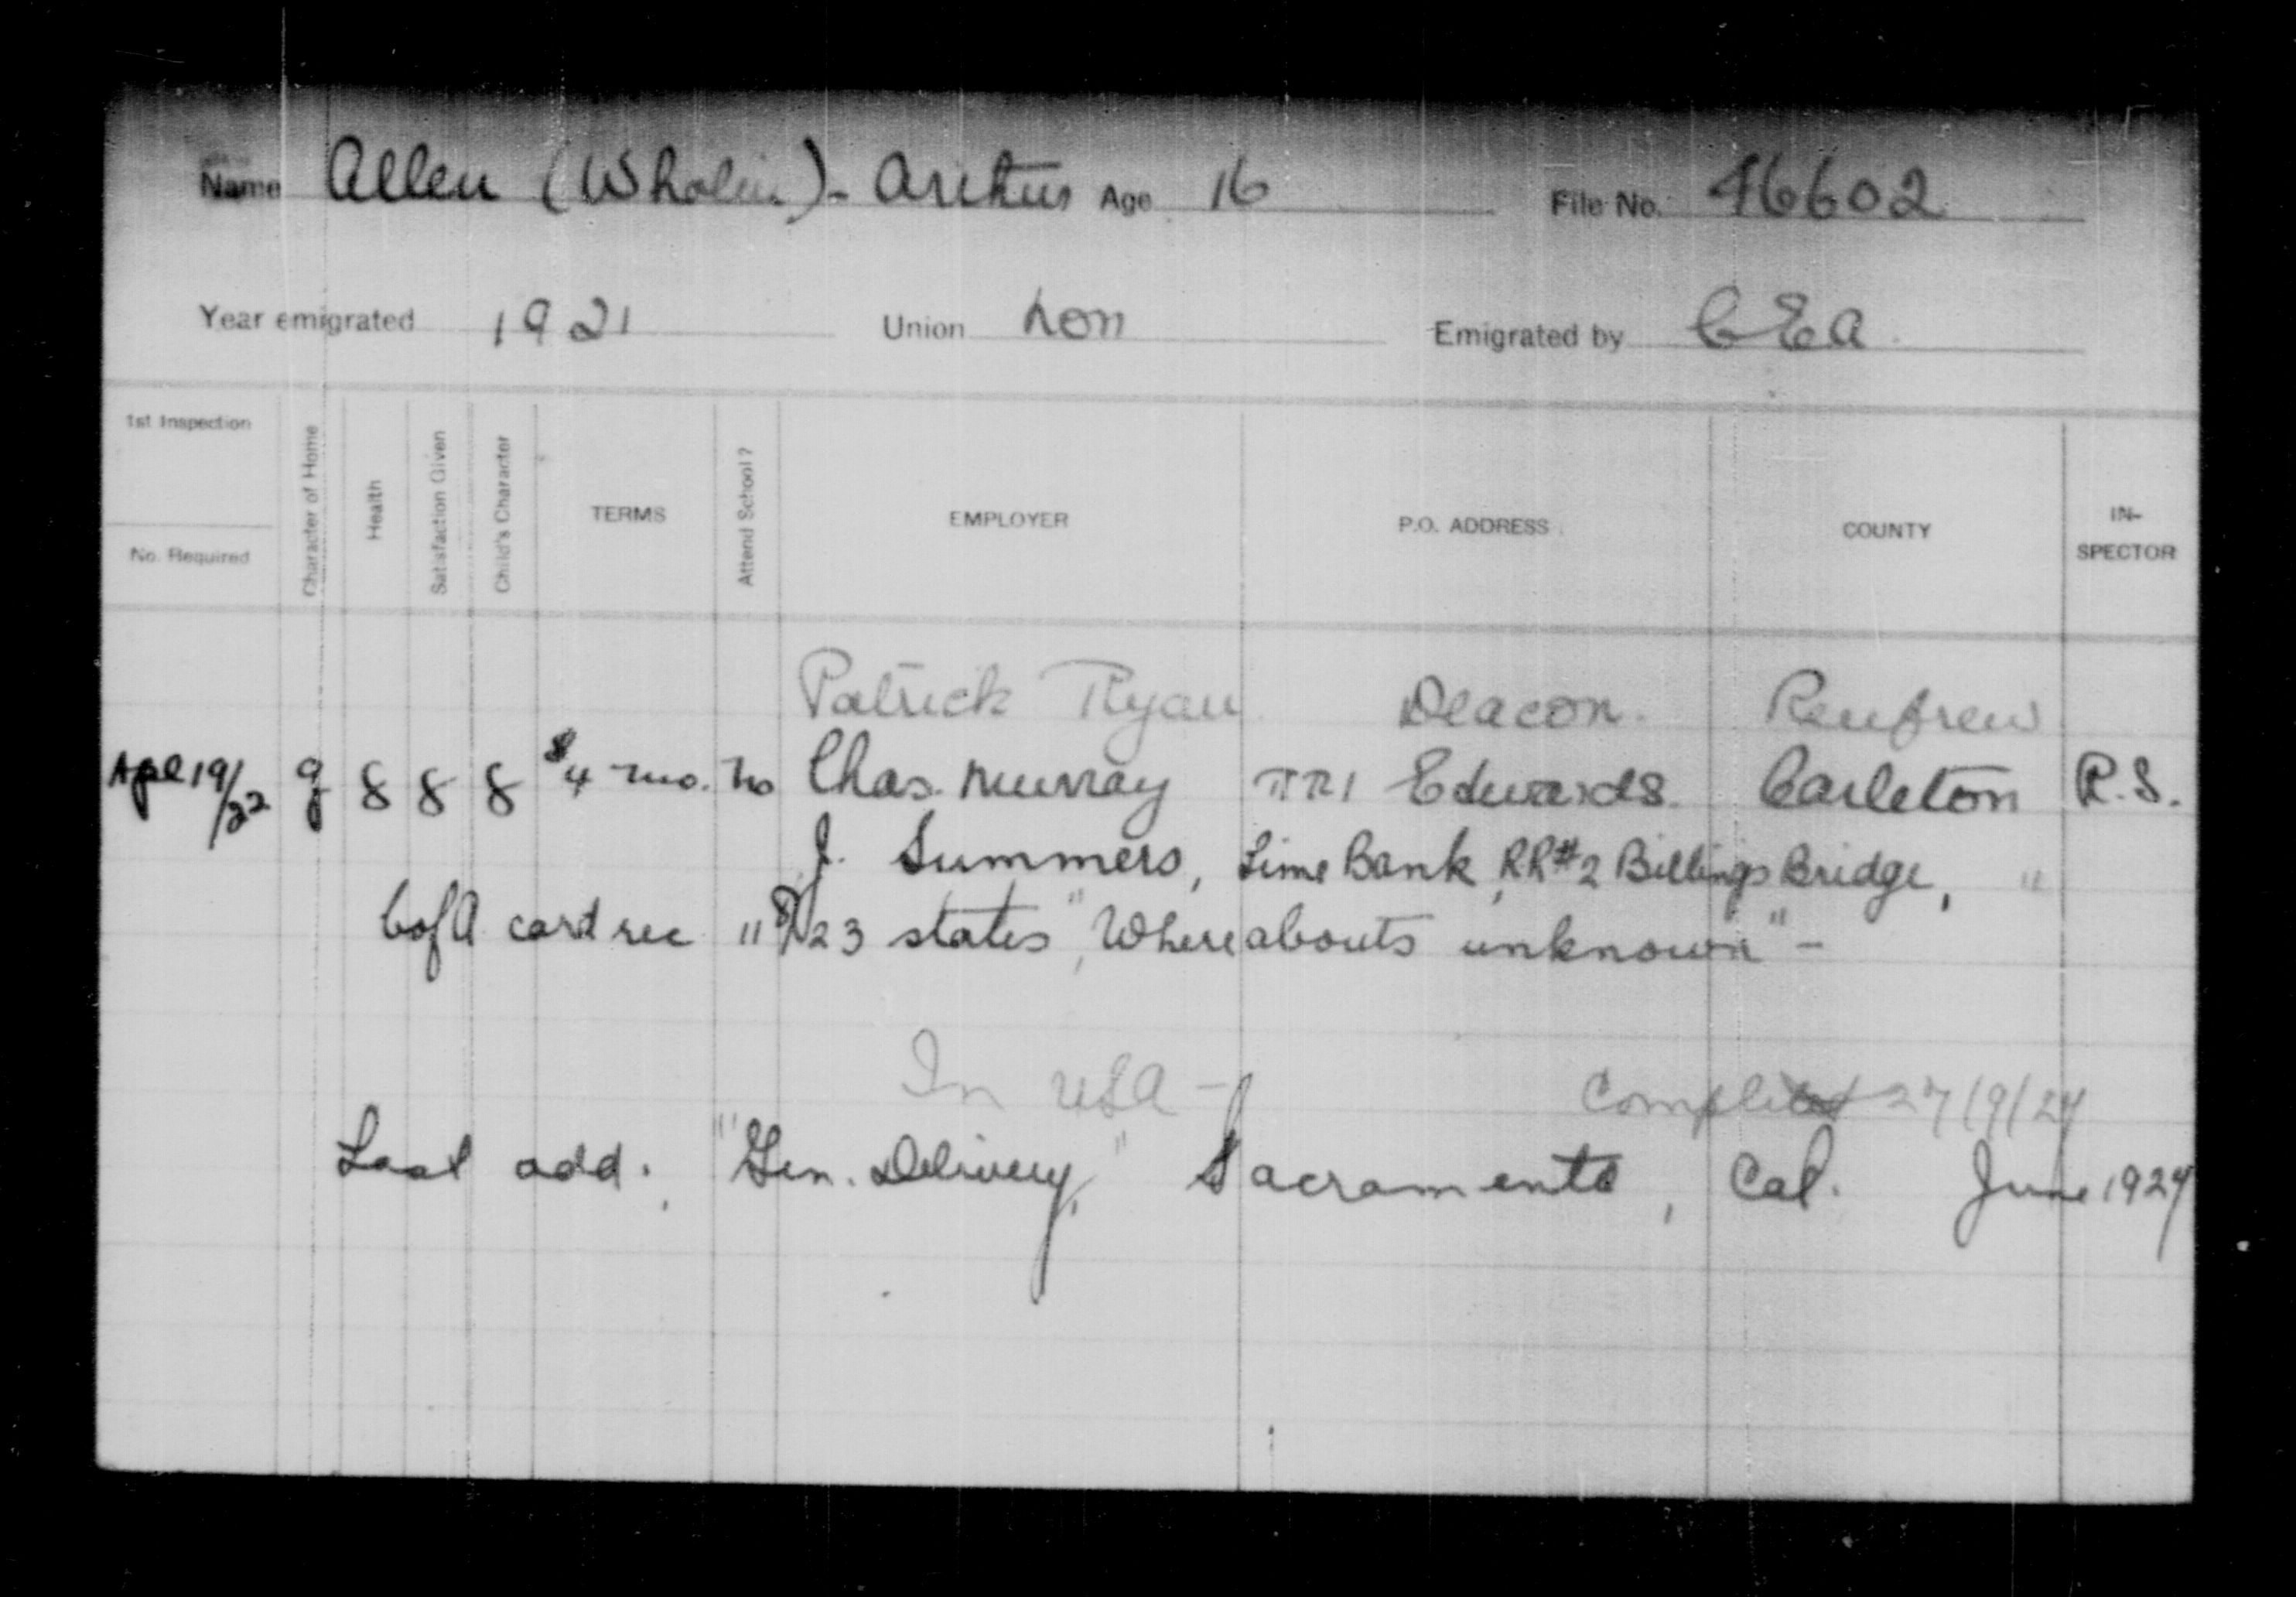 Name Allen (Wholin) - Arthur Age 16 File No. 46602
Year emigrated 1921 Union non Emigrated by CEA
1st Inspection
No. Required
Character of Home
Health
Satisfaction Given
Child's Character
TERMS
Attend School?
EMPLOYER
P.O. ADDRESS
COUNTY
IN-
SPECTOR
Patrick Ryan Deacon. Renfrew
Apl 19/22 g g g g $4 mo. no Chas. Murray RR1 Edwards. Carleton R.S.
J. Summers, Lime Bank, RR#2 Billings Bridge, "
C of A card rec 23 states "Whereabouts unknown" -
In USA - Completed 27/9/24
Last add., "Gen. Delivery," Sacramento, Cal. June 1924